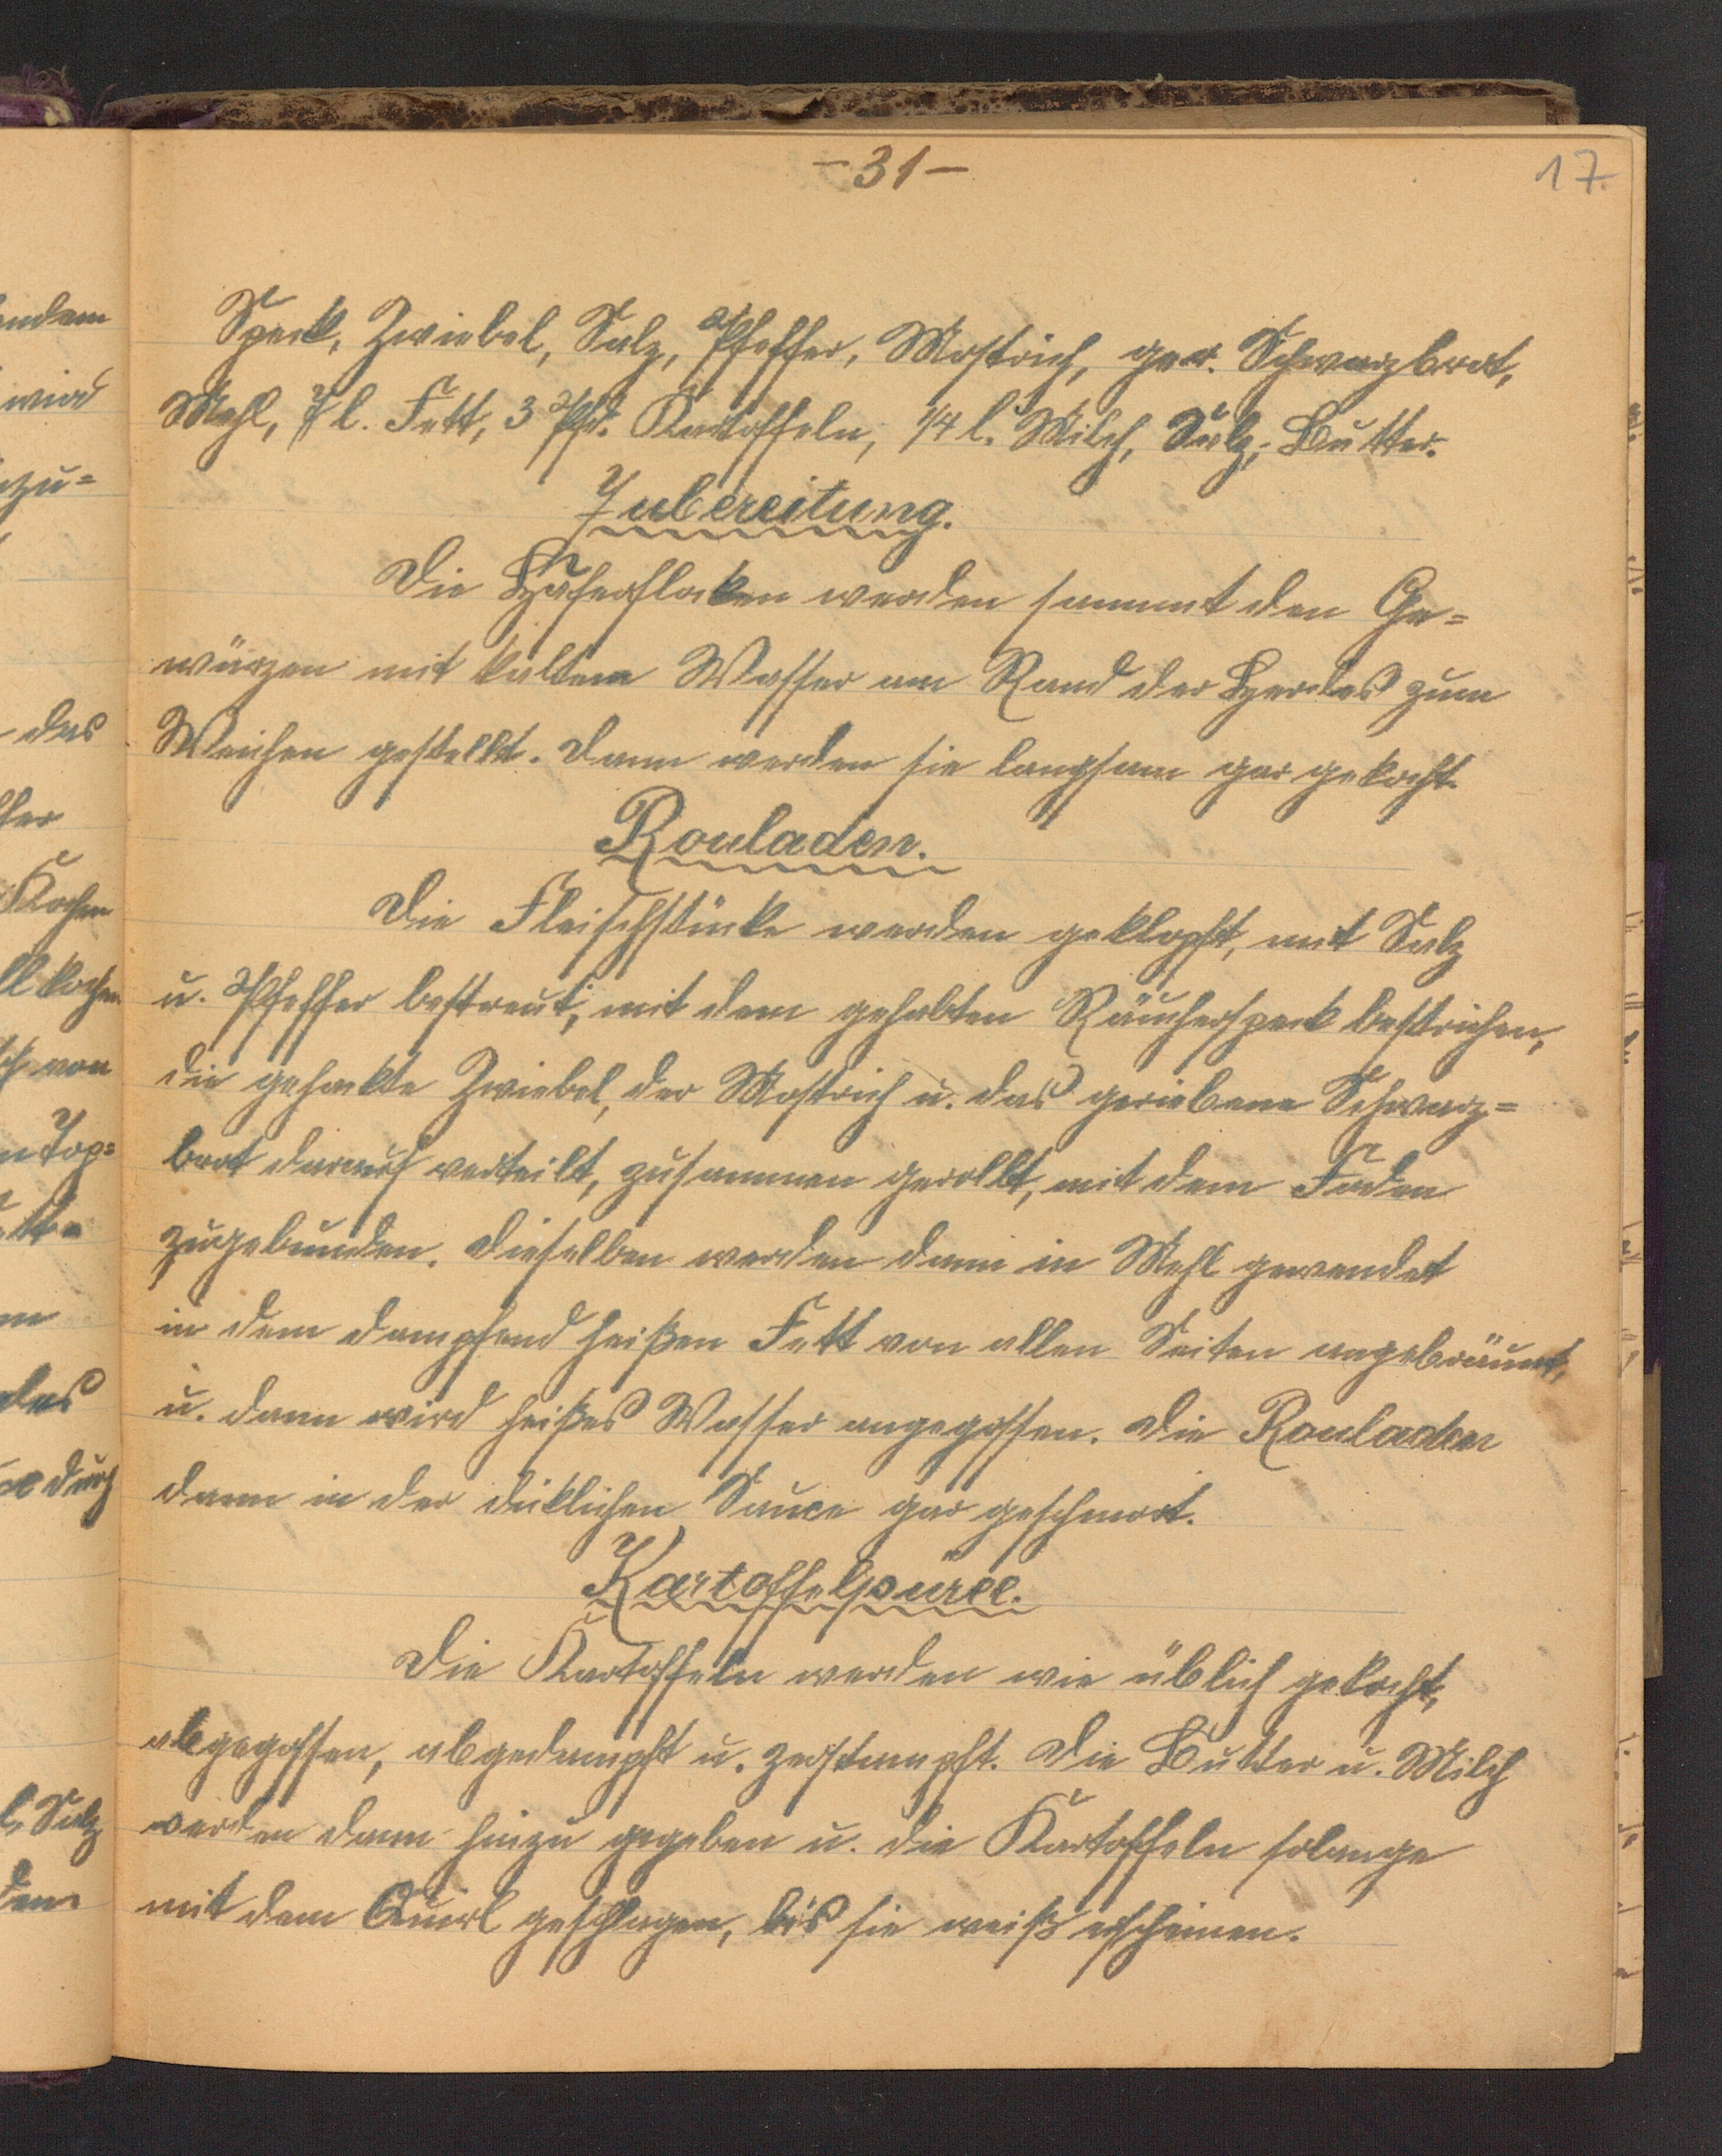 -31-
17.
Speck, Zwiebel, Salz, Pfeffer, Mostrich, ger. Schwarzbrot,
Mehl, l. Fett, 3 Pfd. Kartoffeln, 1/4 l. Milch, Salz, Butter.
Zubereitung.
Die Haferflocken werden sammt den Ge=
würzen mit kaltem Wasser am Rand der Herdes zum
Weichen gestellt. Dann werden sie langsam gar gekocht.
Rouladen.
Die Fleischstücke werden geklopft, mit Salz
u. Pfeffer bestreut, mit dem gehabten Räucherspeck bestrichen,
die gehackte Zwiebel, der Mostrich u. das geriebene Schwarz=
brot darauf verteilt, zusammen gerollt, mit dem Faden
zugebunden. Dieselben werden dann in Mehl gewendet
in dem dampfend heißen Fett von allen Seiten angebräunt,
u. dann wird heißes Wasser angegossen. Die Rouladen
dann in der dicklichen Sauce gar geschmort.
Kartoffelpüree.
Die Kartoffeln werden wie üblich gekocht,
abgegossen, abgedampft u. zerstampft. Die Butter u. Milch
werden dann hinzu gegeben u. die Kartoffeln solange
mit dem Quirl geschlagen, bis sie weiß erscheinen.